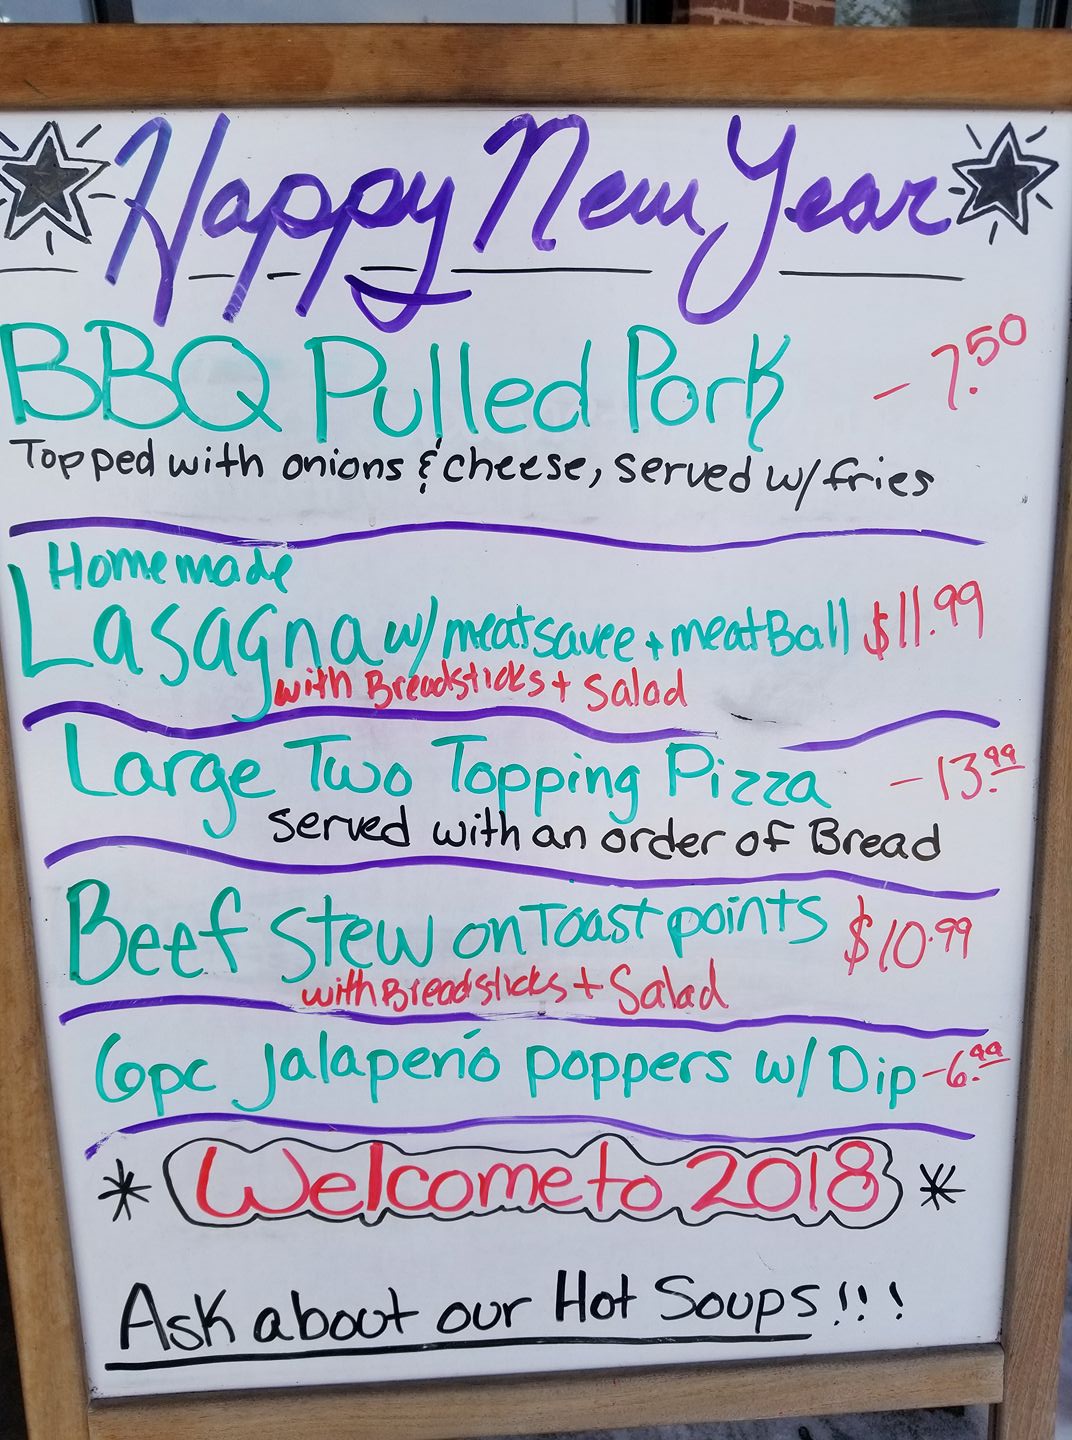 Happy New Year
BBQ Pulled Pork - 7.50
Topped with onions & cheese, served w/ fries
Homemade
Lasagna w/ meatsauce + meatBall $11.99
with Breadsticks + Salad
Large Two Topping Pizza - 13.99
served with an order of Bread
Beef Stew on Toast points $10.99
with Breadsticks + Salad
6pc Jalapeño poppers w/ Dip - 6.99
* Welcome to 2018 *
Ask about our Hot Soups!!!